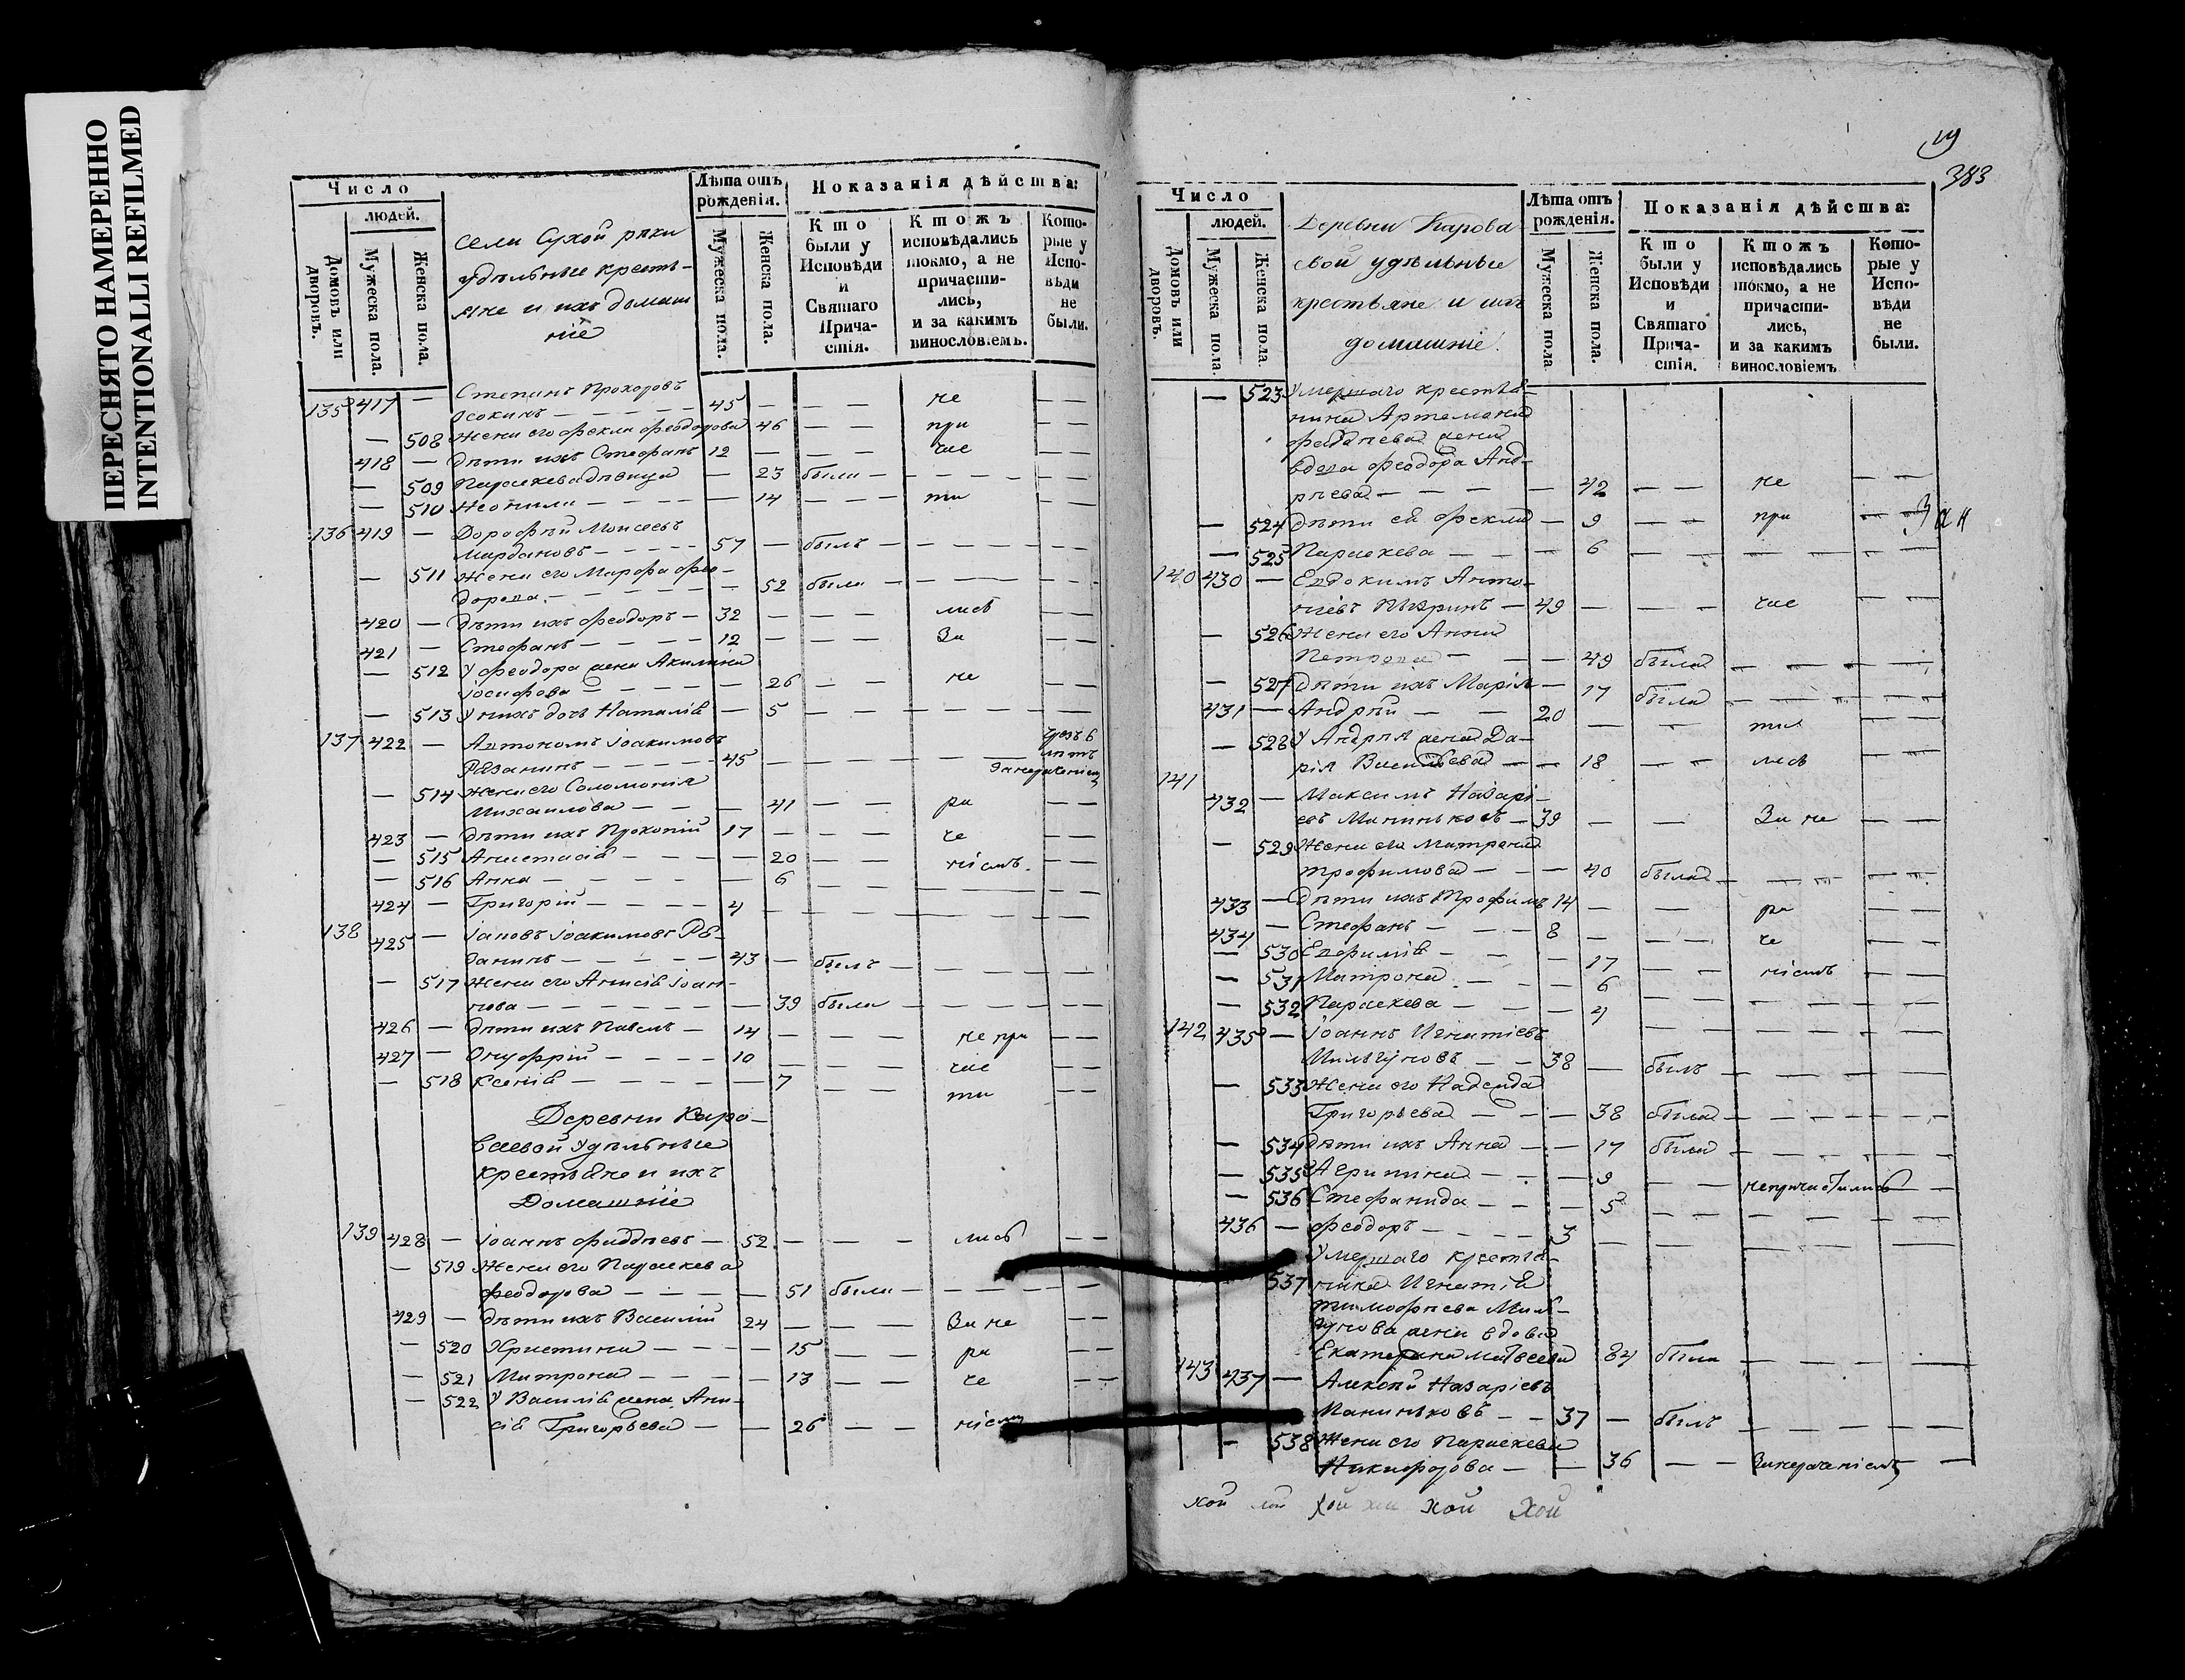 ПЕРЕСНЯТО НАМЕРЕННО
INTENTIONALLI REFILMED
Число
людей.
Домовъ или дворовъ.
Мужеска пола.
Женска пола.
села Сухой рѣки
удѣльные кресть-
яне и ихъ домаш
ніе
Лѣта отъ рожденія.
Мужеска пола.
Женска пола.
Показанія дѣйства:
Кто были у Исповѣди и Святаго Прича- стія.
Ктожъ исповѣдались токмо, а не причасти- лись, и за какимъ винословіемъ.
Кото- рые у Испо- вѣди не были.
135 417 — Степанъ Прохоровъ
Осокинъ — — — — 45 — — — не — —
— 508 Жена его Фекла Феодорова 46 — — при — —
418 — Дѣти ихъ Стефанъ 12 — — — час — —
— 509 Параскева дѣвица — 23 была — — — — —
— 510 Неонила — — — — 14 — — — ти — —
136 419 — Дорофѣй Моисеевъ
Мардановъ — — — — 57 — былъ — — — — —
— 511 Жена его Марфа Фео-
дорова — — — — — 52 была — — — — —
420 — Дѣти ихъ Феодоръ — 32 — — — лись — —
421 — Стефанъ — — — 12 — — — За — —
— 512 У Феодора жена Акилина
Іосифова — — — — — 26 — — не — —
— 513 У нихъ дочь Наталія — 5 — — — — — —
137 422 — Автономъ Іоакимовъ
Рязанинъ — — — — 45 — — — —
чрезъ 6
лѣтъ
За нераченіем
— 514 Жена его Соломонія
Михаилова — — — — 41 — — ра — —
423 — Дѣти ихъ Прокопій 17 — — — че — —
— 515 Анастасія — — — — 20 — — ніемъ — —
— 516 Анна — — — — — 6 — — — — — —
424 — Григорій — — — — 4 — — — — — —
138 425 — Іаковъ Іоакимовъ Ря-
занинъ — — — — 43 — былъ — — — — —
— 517 Жена его Анисія Іоан-
нова — — — — — — 39 была — — — — —
426 — Дѣти ихъ Павелъ — 14 — — — не при — —
427 — Онуфрій — — — — 10 — — — час — —
— 518 Ксенія — — — — — 7 — — ти — —
Деревни Каро-
ваевой Удѣльные
крестьяне и ихъ
Домашніе
139 428 — Іоаннъ Фаддѣевъ — 52 — — — лись — —
— 519 Жена его Параскева
Феодорова — — — — 51 была — — — — —
429 — Дѣти ихъ Василій 24 — — — За не — —
— 520 Христина — — — — 15 — — ра — —
— 521 Матрона — — — — 13 — — че — —
— 522 У Василія жена Ани-
сія Григорьева — — 26 — — ніемъ
19
383
Число
людей.
Домовъ или дворовъ.
Мужеска пола.
Женска пола.
Деревни Карова-
евой удѣльные
крестьяне и ихъ
домашніе.
Лѣта отъ рожденія.
Мужеска пола
Женска пола.
Показанія дѣйства:
Кто были у Исповѣди и Святаго Прича- стія.
Ктожъ исповѣдались токмо, а не причасти- лись, и за какимъ винословіемъ
Кото- рые у Испо- вѣди не были.
— 523 Умершаго крестья-
нина Артемона
Фаддѣева жена
вдова Феодора Анд-
рѣева — — — — 42 — — не — —
— 524 Дѣти ея Фекла — 9 — — при — —
— 525 Параскева — — — 6 — — — — — —
140 430 — Евдокимъ Анто-
ніевъ — 49 — — — час — —
— 526 Жена его Анна
Петрова — — — 49 была — — — — —
— 527 Дѣти ихъ Марія — 17 была — — — — —
431 — Андрѣй — — 20 — — — ти — —
— 528 У Андрѣя жена Да-
рія Васильева — — 18 — — лись — —
141 432 — Максимъ Назарі-
евъ Манинковъ — 39 — — За не — —
— 529 Жена его Матрона
Трофимова — — — 40 была — — — — —
433 — Дѣти ихъ Трофимъ 14 — — ра — —
434 — Стефанъ — — — 8 — — — че — —
— 530 Евфимія — — — 17 — — ніемъ — —
— 531 Матрона — — — 6 — — — — — —
— 532 Параскева — — — 4 — — — — — —
142 435 — Іоаннъ Игнатіевъ
Мильгуновъ — — 38 — былъ — — — — —
— 533 Жена его Надежда
Григорьева — — — 38 была — — — — —
— 534 Дѣти ихъ Анна — — 17 была — — — — —
— 535 Агрипина — — — 9 — — непричастилась — —
— 536 Стефанида — — — 5 — — — — — —
436 — Феодоръ — — — — 3 — — — — — —
Умершаго крестья-
537 нина Игнатія
Тимофѣева Миль-
гунова жена вдова
Екатерина Матвеева 84 была — — — — —
143 437 — Алексѣй Назаріевъ
Манинковъ — — 37 — былъ — — — — —
— 538 Жена его Параскева
Никифорова — — 36 — — Занераченіемъ —
хой хой хой хой хой